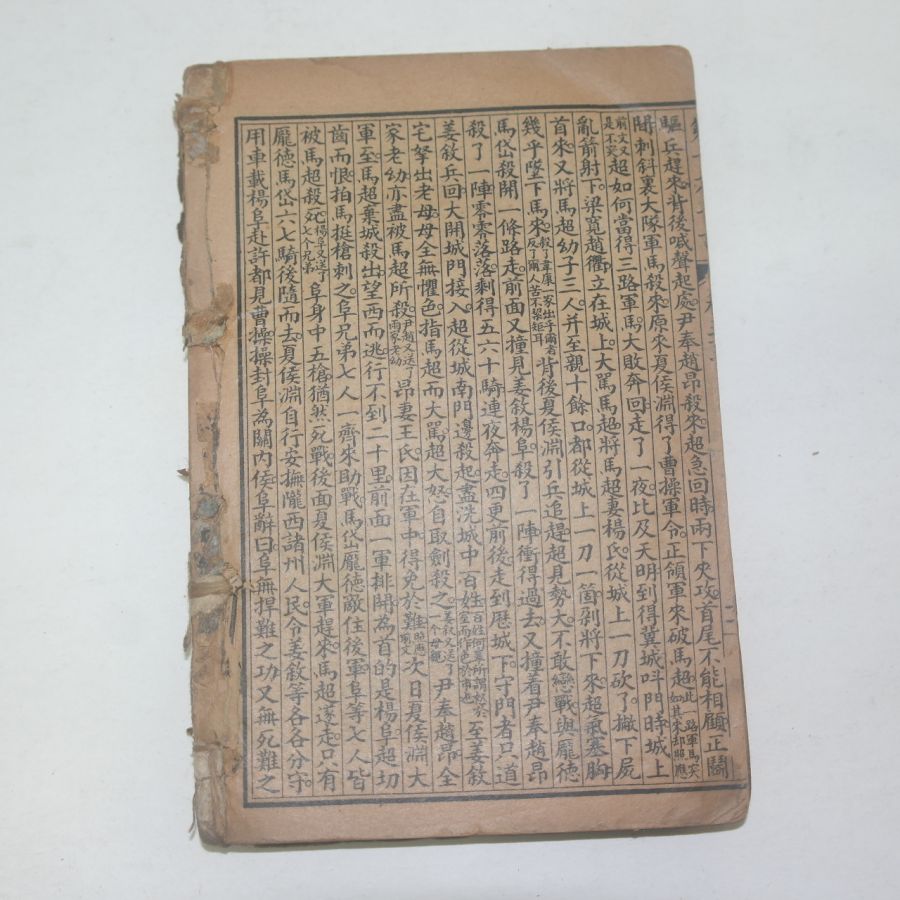 驅兵趕來背後喊聲起處尹奉趙昂殺來超急回時兩下夾攻首尾不能相顧正鬭
間刺斜裏大隊軍馬殺來原來夏侯淵得了曹操軍令正領軍來破馬超此一路軍馬突如其來却照應
前文又是不突超如何當得三路軍馬大敗奔回走了一夜比及天明到得冀城叫門時城上
亂箭射下梁寬趙衢立在城上大罵馬超將馬超妻楊氏從城上一刀砍了撇下屍
首來又將馬超幼子三人并至親十餘口都從城上一刀一箇剁將下來超氣塞胸
幾乎墜下馬來殺了韋康一家出乎爾者反了爾人苦不絜矩耳背後夏侯淵引兵追趕超見勢大不敢戀戰與龐德
馬岱殺開一條路走前面又撞見姜敘楊阜殺了一陣衝得過去又撞着尹奉趙昂
殺了一陣零零落落剩得五六十騎連夜奔走四更前後走到歷城下守門者只道
姜敘兵回大開城門接入超從城南門邊殺起盡洗城中百姓至姜敘
宅拏出老母母全無懼色指馬超而大罵超大怒自取劍殺之姜敘又送了一个母親尹奉趙昂全
家老幼亦盡被馬超所殺尹趙又送了兩家老幼昂妻王氏因在軍中得免於難照應前文次日夏侯淵大
軍至馬超棄城殺出望西而逃行不到二十里前面一軍排開為首的是楊阜超切
齒而恨拍馬挺槍刺之阜兄弟七人一齊來助戰馬岱龐德敵住後軍阜等七人皆
被馬超殺死楊阜又送了七个兄弟阜身中五槍猶然死戰後面夏侯淵大軍趕來馬超遂走只有
龐德馬岱六七騎後隨而去夏侯淵自行安撫隴西諸州人民令姜敘等各各分守
用車載楊阜赴許都見曹操操封阜為關內侯阜辭曰阜無捍難之功又無死難之